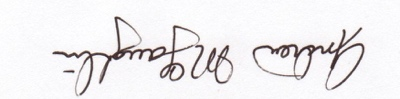 Andrew McLaughlin